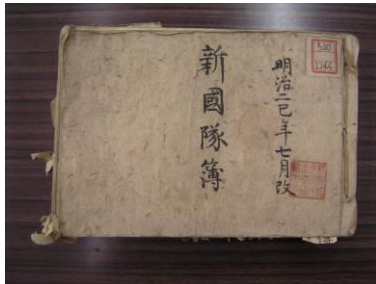 明治二巳年七月改
新國隊簿